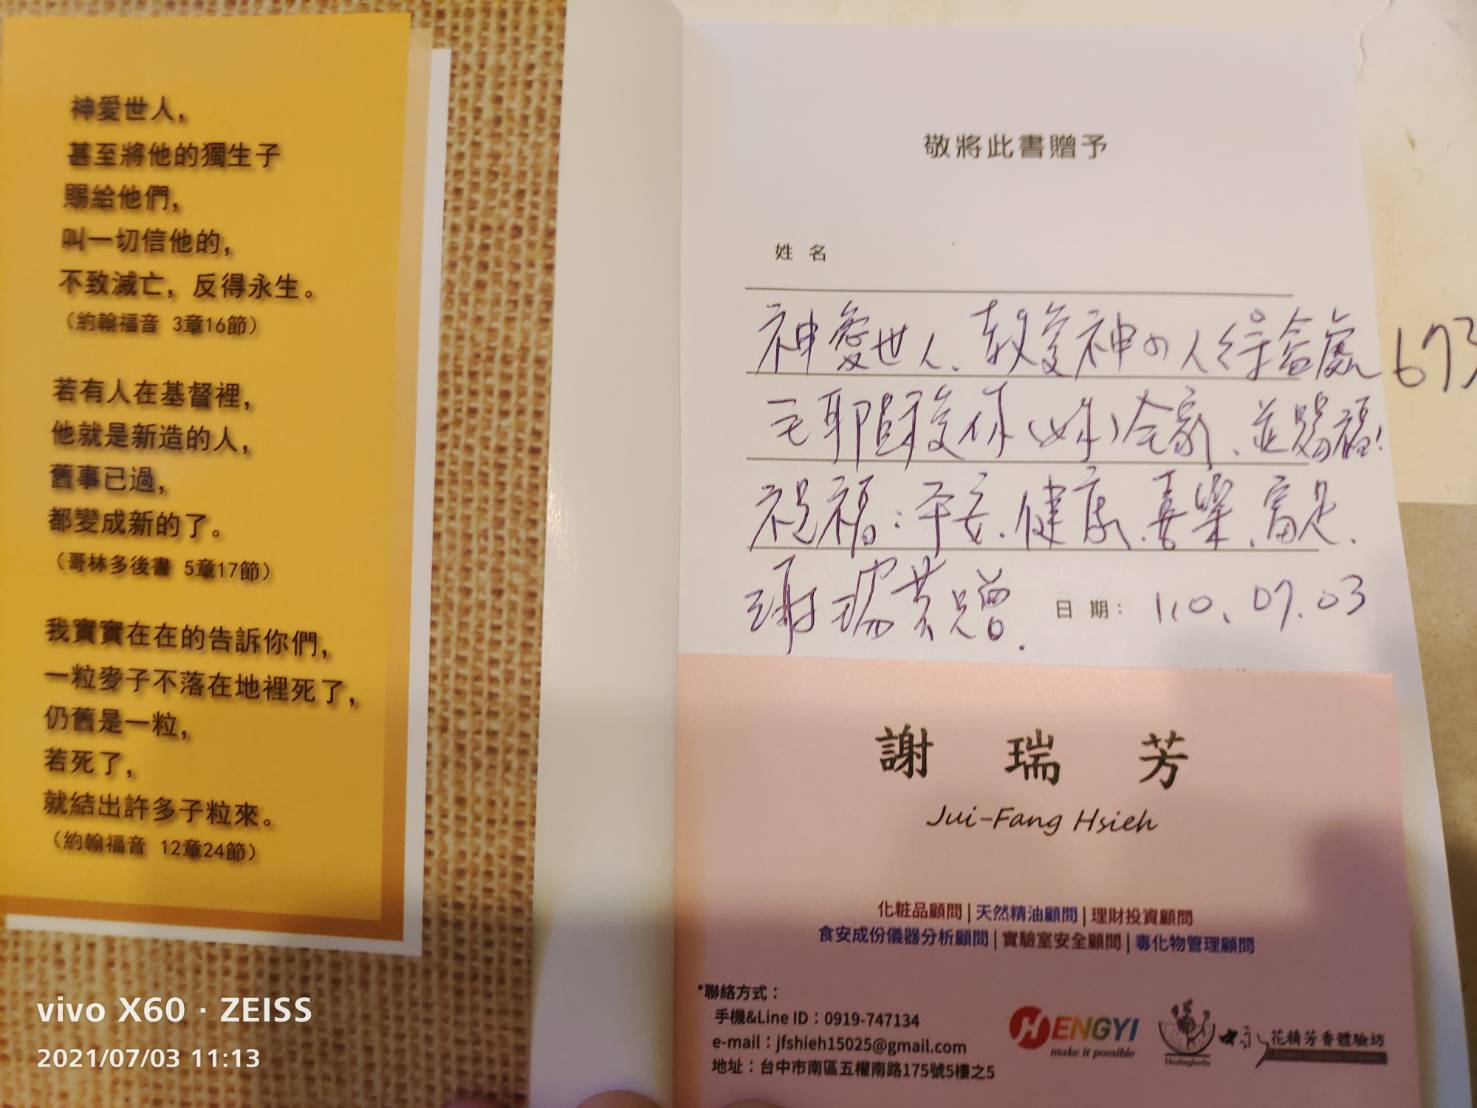 神愛世人，
甚至將他的獨生子
賜給他們，
叫一切信他的，
不致滅亡，反得永生。
（約翰福音 3章16節）
若有人在基督裡，
他就是新造的人，
舊事已過，
都變成新的了。
（哥林多後書 5章17節）
我實實在在的告訴你們，
一粒麥子不落在地裡死了，
仍舊是一粒，
若死了，
就結出許多子粒來。
（約翰福音 12章24節）
敬將此書贈予
姓 名
神愛世人、教愛神の人得益處 673
主耶穌愛你(妳)全家、並賜福!
祝福：平安、健康、喜樂、富足.
謝瑞芳贈.
日 期： 110.07.03
謝 瑞 芳
Jui-Fang Hsieh
化粧品顧問|天然精油顧問|理財投資顧問
食安成份儀器分析顧問|實驗室安全顧問|毒化物管理顧問
*聯絡方式：
手機&Line ID：0919-747134
e-mail：jfshieh15025@gmail.com
地址：台中市南區五權南路175號5樓之5
HENGYI
make it possible
花精芳香體驗坊
vivo X60 · ZEISS
2021/07/03 11:13